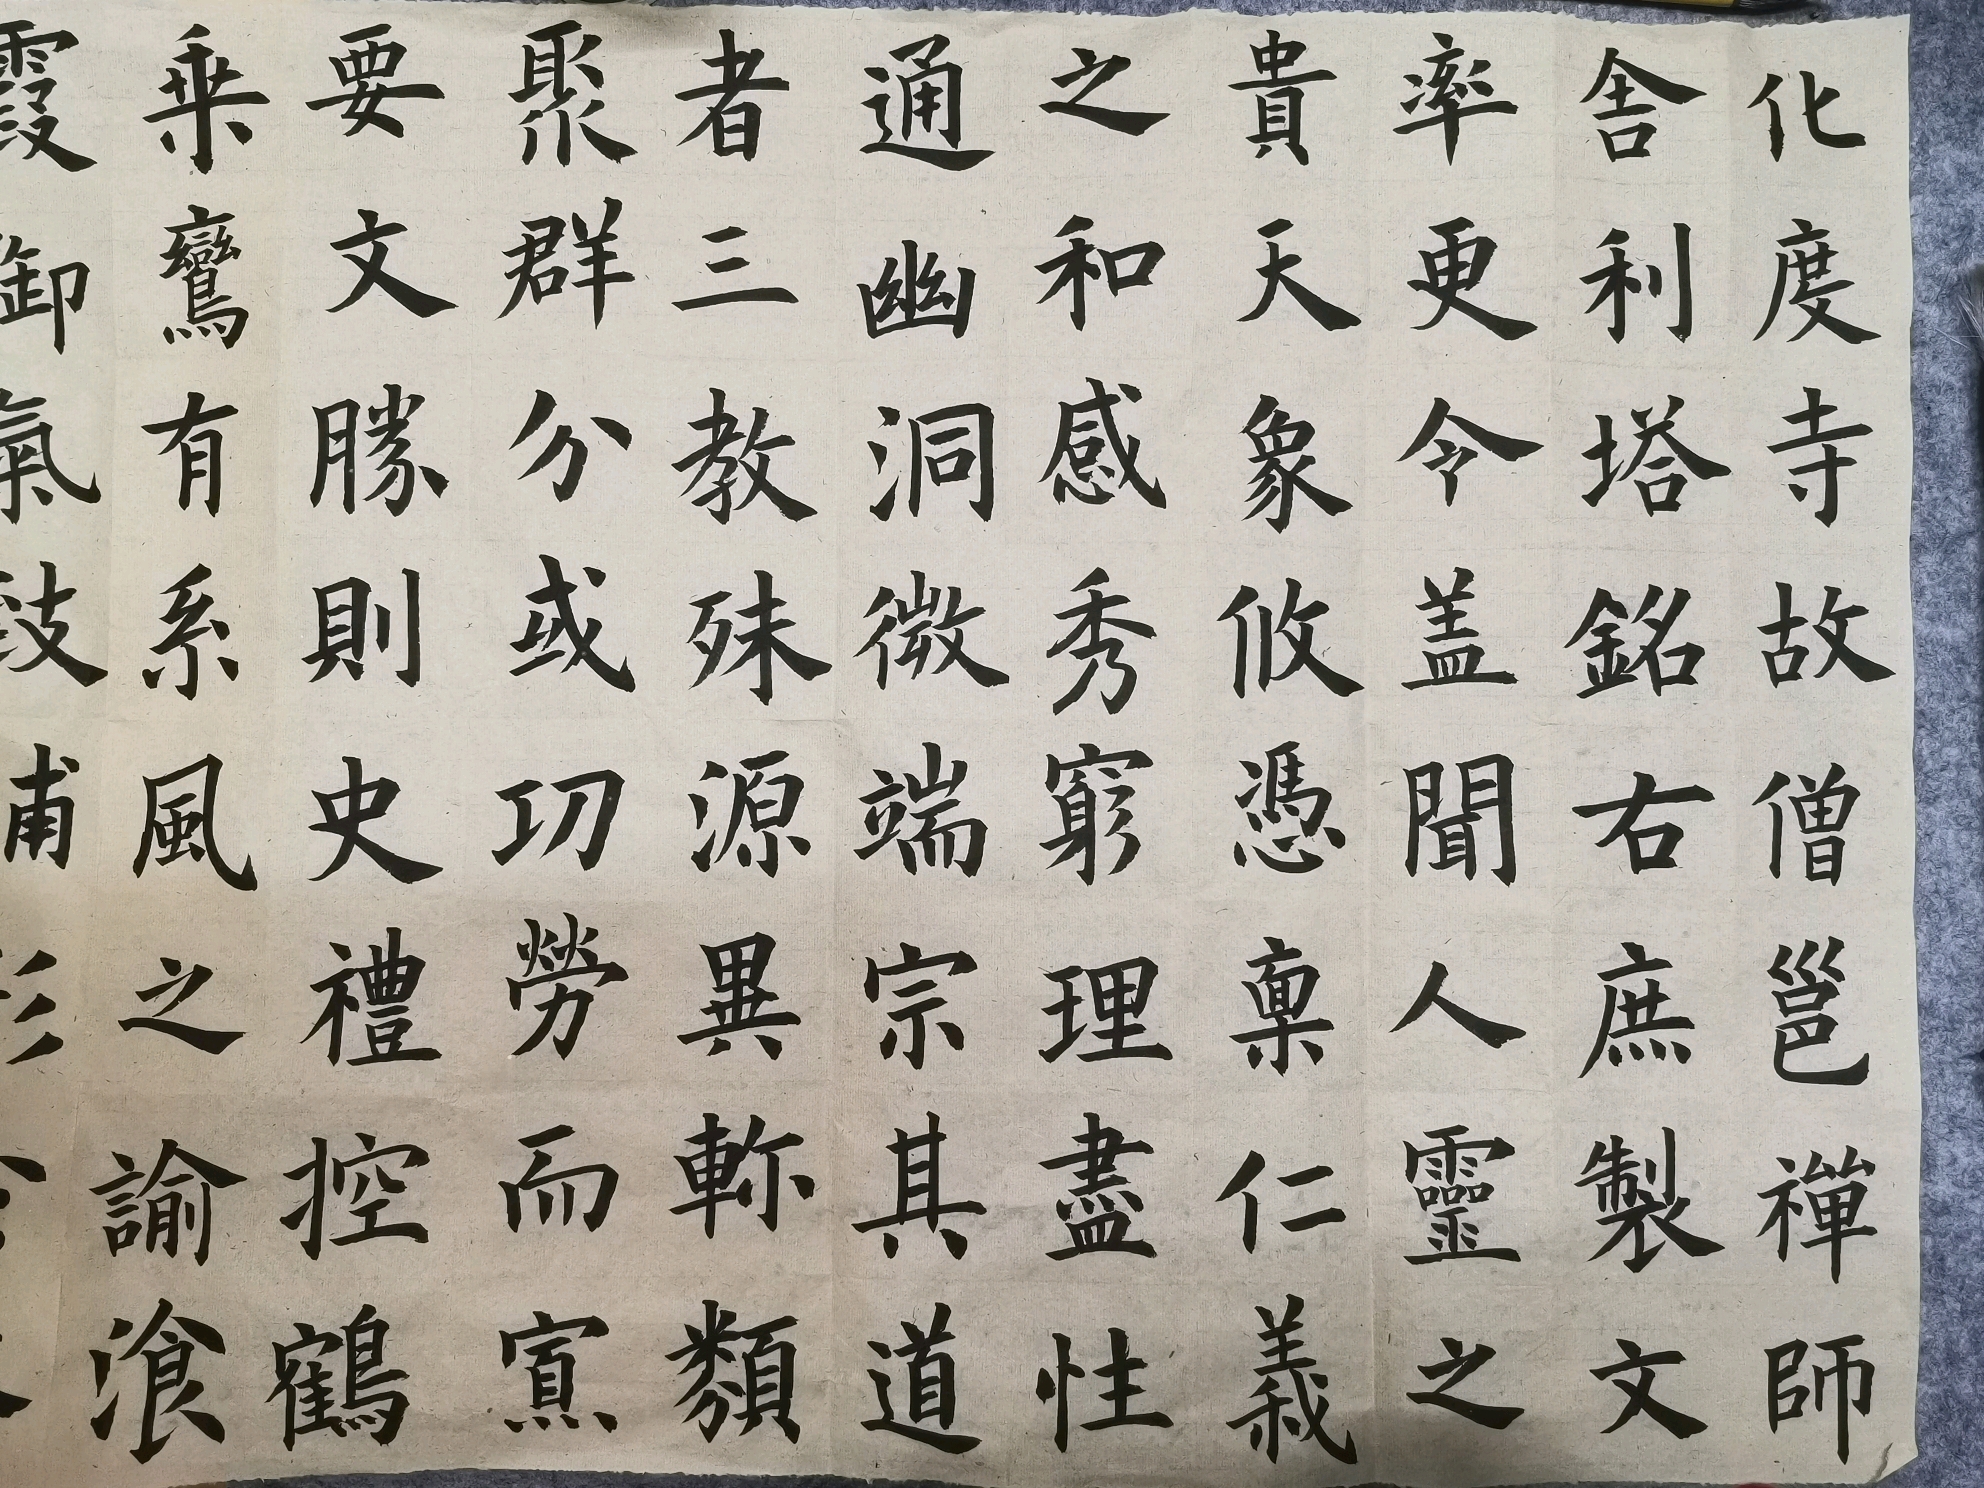 化度寺故僧邕禪師
舎利塔銘右庶製文
率更令盖聞人靈之
貴天象攸憑稟仁義
之和感秀窮理盡性
通幽洞微端宗其道
者三教殊源異軫類
聚群分或功勞而寡
要文勝則史禮控鶴
乗鸞有系風之諭飡
霞御氣致捕影